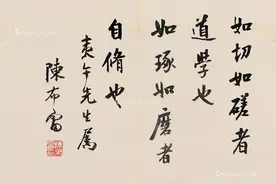 如切如磋者
道學也
如琢如磨者
自脩也
夷午先生屬
陳布雷